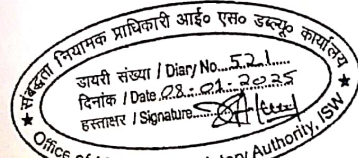 संबद्धता नियामक प्राधिकारी आई० एस० डब्ल्यू० कार्यालय
डायरी संख्या / Diary No. 521
दिनांक / Date 08-01-2025
हस्ताक्षर / Signature
Office of latory Authority, ISW